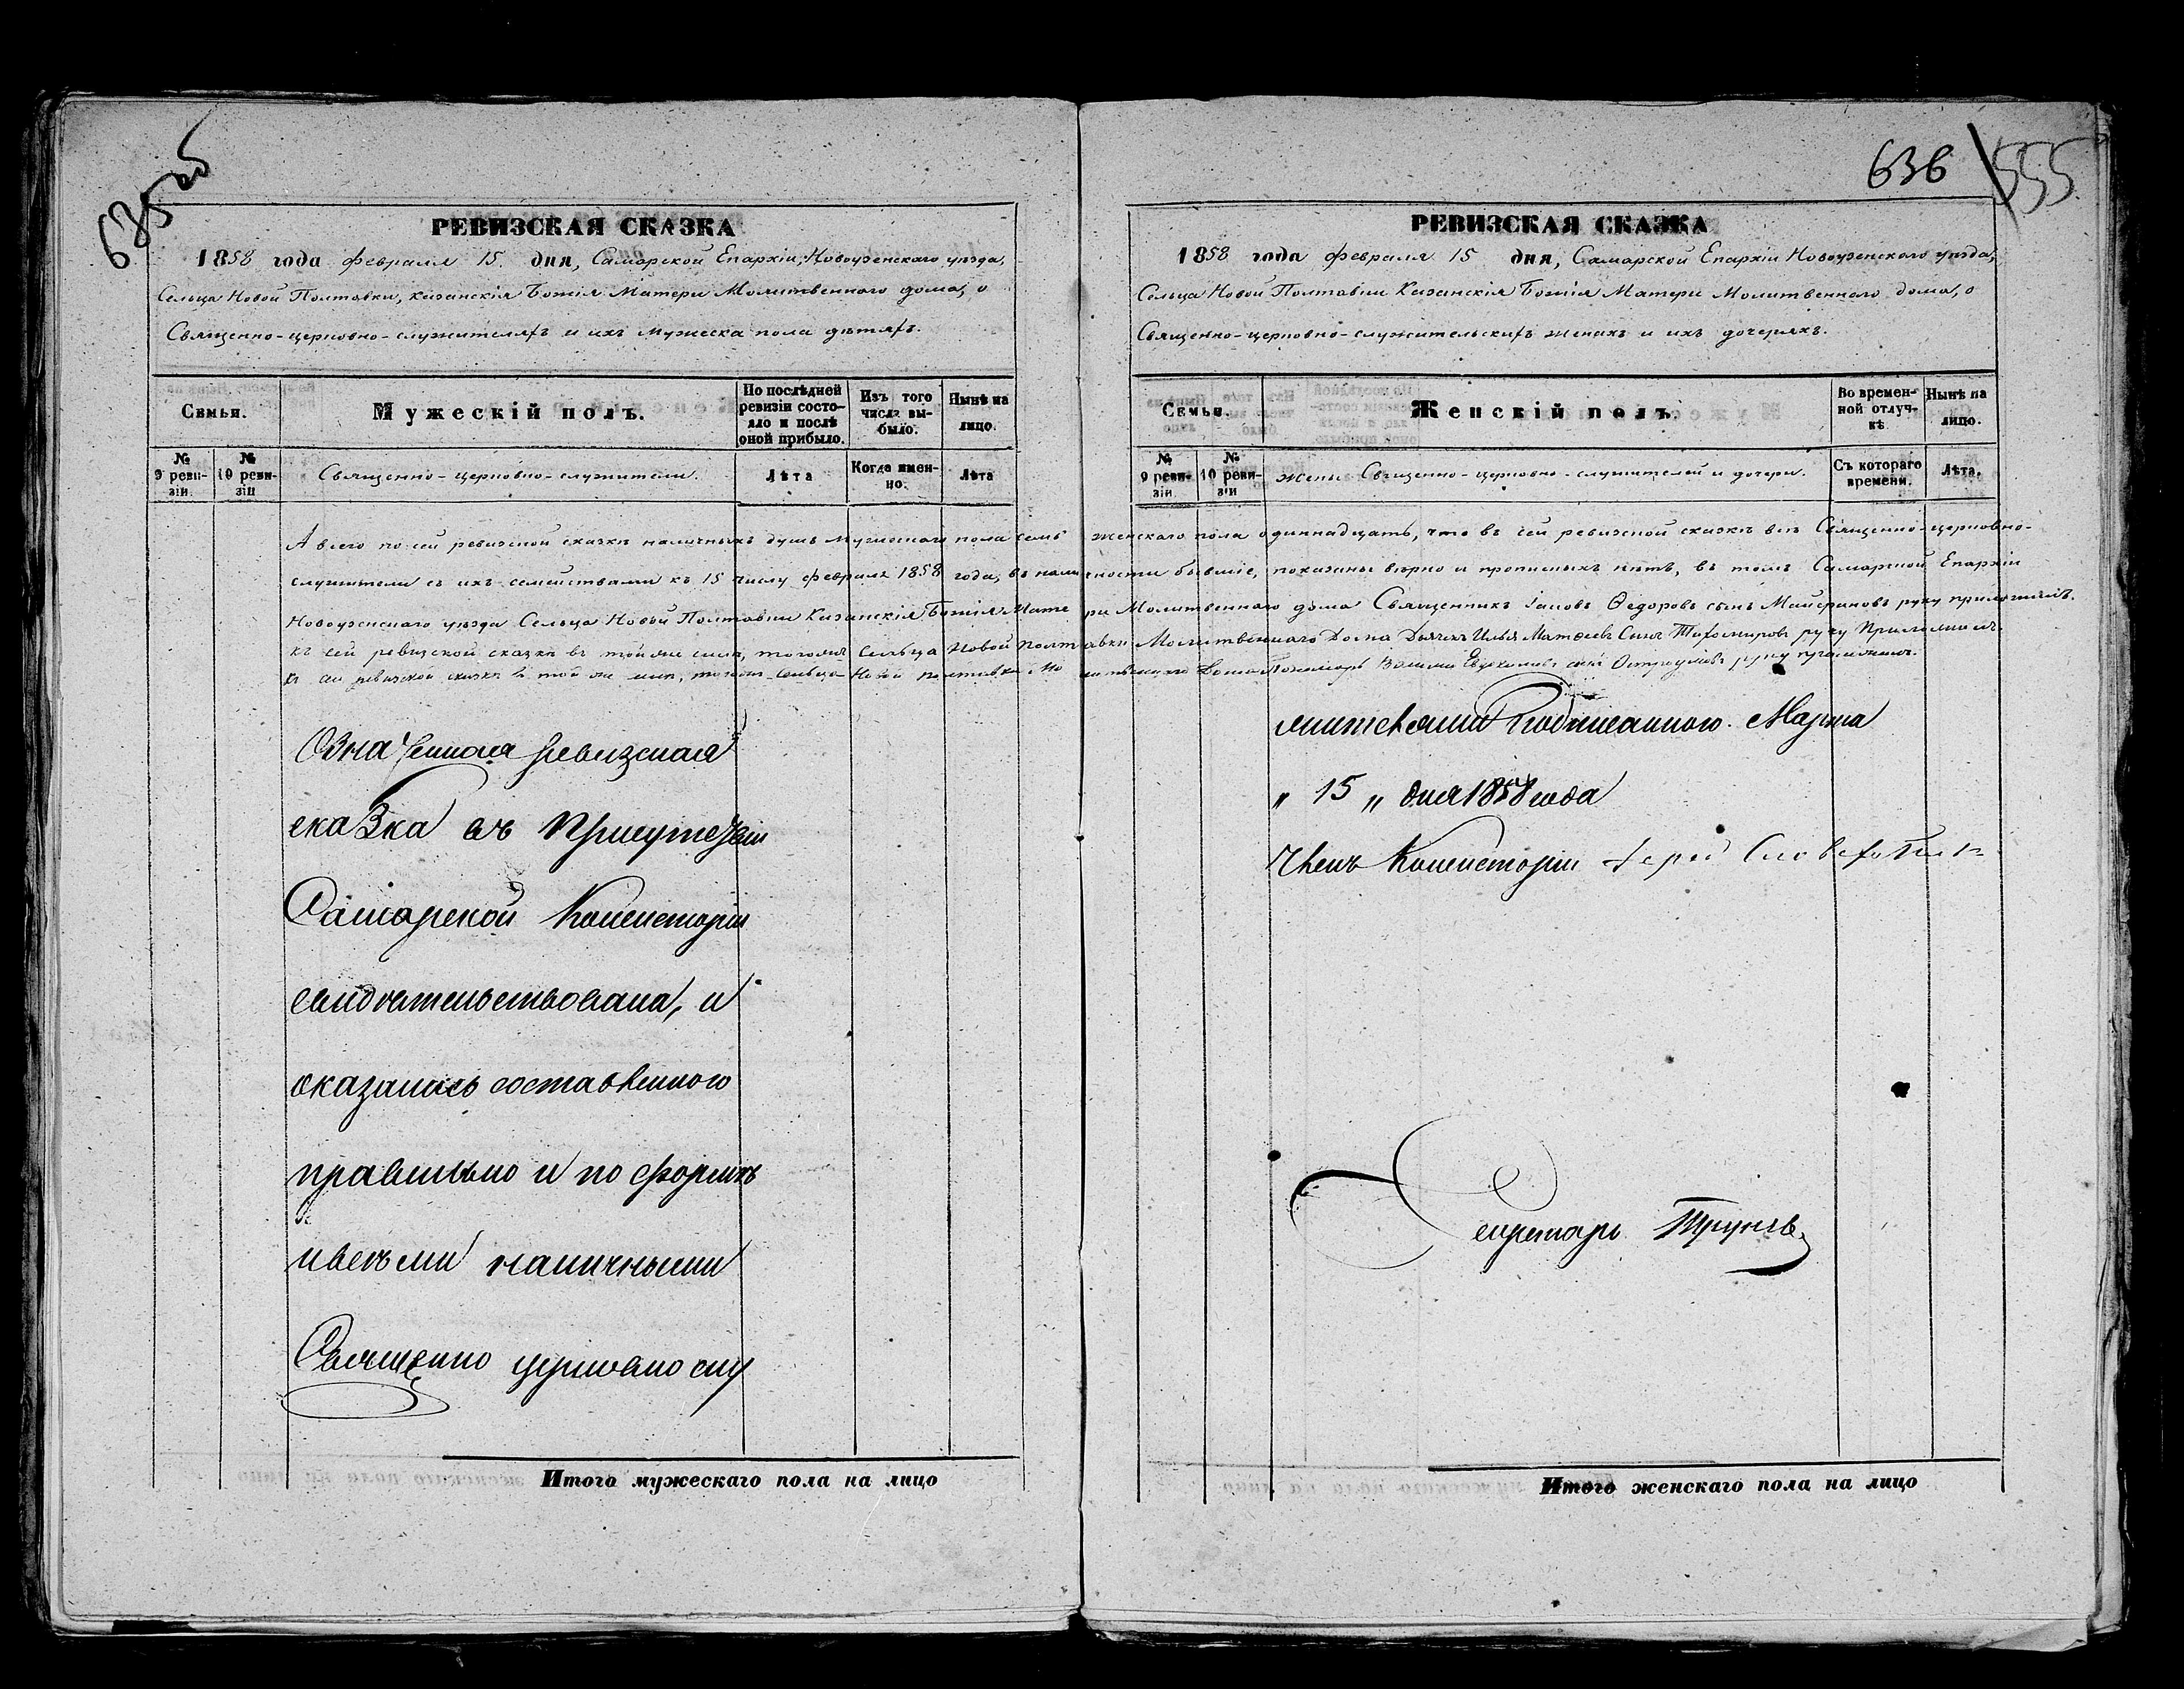 635об
РЕВИЗСКАЯ СКАЗКА
1858 года февраля 15 дня, Самарской Епархіи, Новоузенскаго уѣзда,
Сельца Новой Полтавки, Казанскія Божія Матери Молитвеннаго дома, о
Священно-церковно-служителяхъ и ихъ мужеска пола дѣтяхъ.
Семьи.
Мужескій полъ.
По послѣдней ревизіи состояло и послѣ оной прибыло.
Изъ того числа выбыло.
Нынѣ на лицо.
№ 9 ревизіи.
№ 10 ревизіи
Священно-церковно-служители.
Лѣта
Когда именно.
Лѣта
636 555
РЕВИЗСКАЯ СКАЗКА
1858 года февраля 15 дня, Самарской Епархіи Новоузенскаго уѣзда,
Сельца Новой Полтавки Казанскія Божія Матери Молитвеннаго дома, о
Священно-церковно-служительскихъ женахъ и ихъ дочеряхъ.
Семьи.
Женскій полъ.
Во временной отлучкѣ.
Нынѣ на лицо.
№ 9 ревизіи.
№ 10 ревизіи
Жены Священно-церковно-служителей и дочери.
Съ котораго времени.
Лѣта.
А всего по сей ревизской сказкѣ наличныхъ душъ мужескаго пола семь женскаго пола одиннадцать, что въ сей ревизской сказкѣ всѣ Священно-церковно-
служители съ ихъ семействами къ 15 числу февраля 1858 года, въ наличности бывшіе, показаны вѣрно и прописныхъ нѣтъ, въ томъ Самарской Епархіи
Новоузенскаго уѣзда Сельца Новой Полтавки Казанскія Божія Матери Молитвеннаго дома Священникъ Іаковъ Ѳедоровъ сынъ руку приложилъ.
къ сей ревизской сказкѣ въ той же силѣ, тогожъ Сельца Новой Полтавки Молитвеннаго Дома Дьячекъ Илья Матвеевъ Сынъ Тихомировъ руку Приложилъ.
къ сей ревизской сказкѣ въ той же силѣ, тогожъ Сельца Новой Полтавки Молитвеннаго Дома Пономарь Василій Евдокимовъ сынъ Остроумовъ руку приложилъ.
Означенная ревизская
сказка въ присутствіи
Самарской Консисторіи
свидѣтельствована, и
оказалась составленною
правильно и по формѣ
и всѣми наличными
Священно церковно слу
жителями подписанною. Марта
„ 15 „ дня 1858 года
Членъ Консисторіи
Секретарь
Итого мужескаго пола на лицо
Итого женскаго пола на лицо